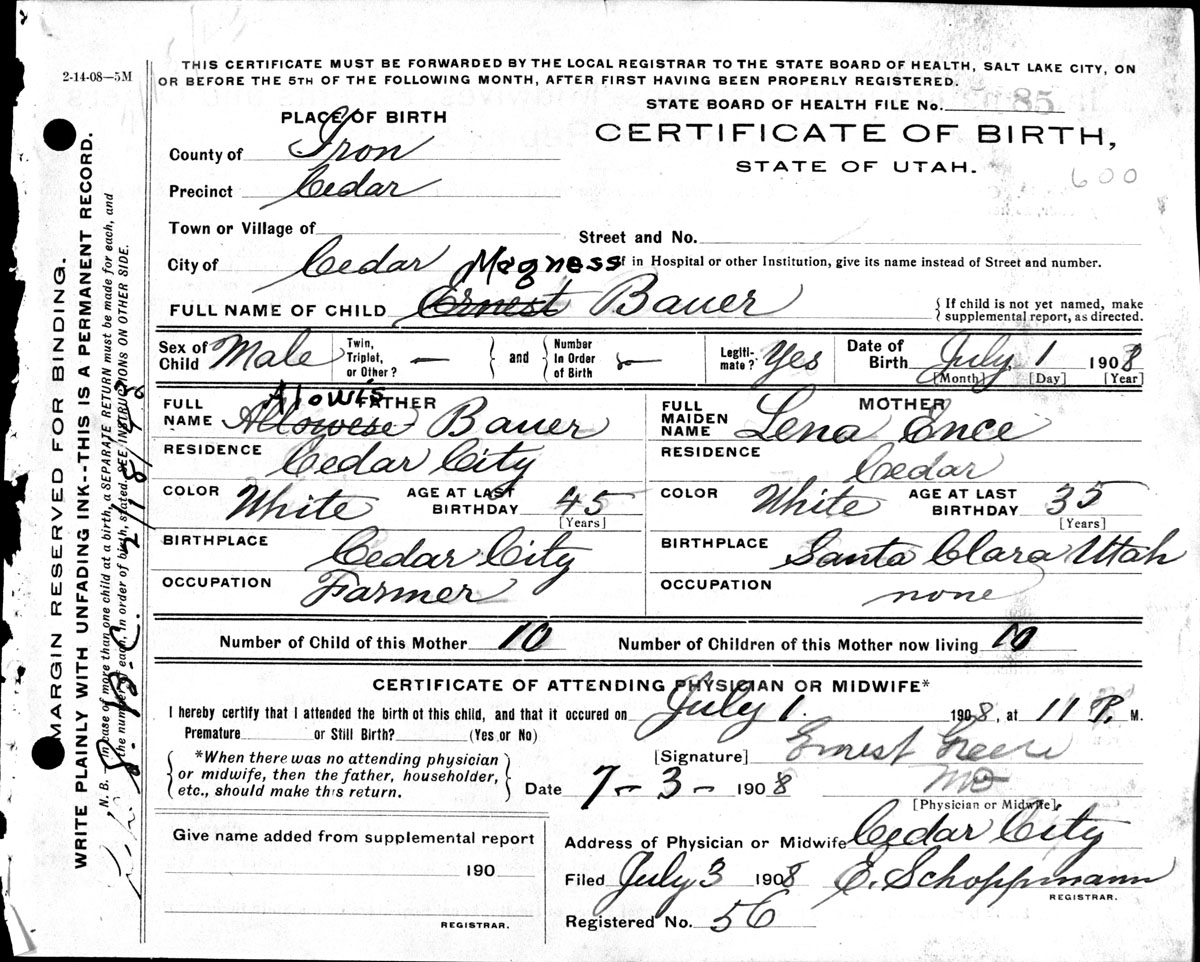 2-14-08—5M
THIS CERTIFICATE MUST BE FORWARDED BY THE LOCAL REGISTRAR TO THE STATE BOARD OF HEALTH, SALT LAKE CITY, ON
OR BEFORE THE 5TH OF THE FOLLOWING MONTH, AFTER FIRST HAVING BEEN PROPERLY REGISTERED.
STATE BOARD OF HEALTH FILE No.
85
PLACE OF BIRTH
CERTIFICATE OF BIRTH,
STATE OF UTAH.
600
County of Iron
Precinct Cedar
Town or Village of
Street and No.
City of Cedar
If in Hospital or other Institution, give its name instead of Street and number.
Magness
FULL NAME OF CHILD Ernest Bauer
{If child is not yet named, make
supplemental report, as directed.
Sex of Child Male
Twin, Triplet, or Other? —
and
Number In Order of Birth —
Legiti- mate? Yes
Date of Birth July 1 1908
[Month] [Day] [Year]
FATHER
Alowis
FULL NAME Allowese Bauer
RESIDENCE Cedar City
COLOR White AGE AT LAST BIRTHDAY 45
[Years]
BIRTHPLACE Cedar City
OCCUPATION Farmer
MOTHER
FULL MAIDEN NAME Lena Ence
RESIDENCE Cedar
COLOR White AGE AT LAST BIRTHDAY 35
[Years]
BIRTHPLACE Santa Clara Utah
OCCUPATION none
Number of Child of this Mother 10 Number of Children of this Mother now living 10
CERTIFICATE OF ATTENDING PHYSICIAN OR MIDWIFE*
I hereby certify that I attended the birth of this child, and that it occured on July 1. 1908, at 11 P. M.
Premature or Still Birth? (Yes or No)
*When there was no attending physician
or midwife, then the father, householder,
etc., should make this return.
[Signature] Ernest Greene
MD
Date 7-3-1908
[Physician or Midwife]
Give name added from supplemental report
190
REGISTRAR.
Address of Physician or Midwife Cedar City
Filed July 3 1908 E. Schoppmann
REGISTRAR.
Registered No. 56
MARGIN RESERVED FOR BINDING.
WRITE PLAINLY WITH UNFADING INK--THIS IS A PERMANENT RECORD.
N. B.—In case of more than one child at a birth, a SEPARATE RETURN must be made for each, and
the number of each, in order of birth, stated. SEE INSTRUCTIONS ON OTHER SIDE.